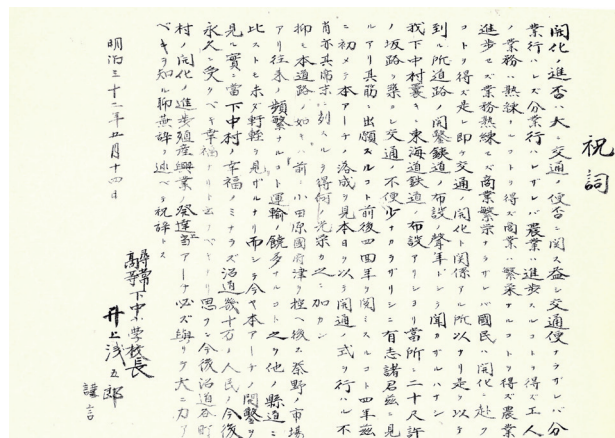 祝詞
開化ノ進否ハ大ニ交通ノ便否ニ関ス蓋シ交通便ナラザレバ分
業行ハレズ分業行ハレザレバ農業ハ進歩スルコトヲ得ズ工人
ノ業務ハ熟練スルコトヲ得ズ商業ハ繁栄ナルコトヲ得ズ農業
進歩セズ業務熟練セズ商業繁栄ナラザレバ国民ハ開化ニ赴ク
コトヲ得ズ是レ即チ交通ノ開化ト関係アル所以ナリ是ヲ以テ
到ル所道路ノ開鑿鉄道ノ布設ノ挙年トシテ聞カザルハナシ
我下中村曩キニ東海道鉄道ノ布設アリシヨリ当所ニ二十尺許
ノ坂路ヲ築ク交通ノ不便少ナカラザリシニ有志諸君茲ニ見
ルアリ其筋ニ出願スルコト前後四回年ヲ関スルコト四年茲
ニ初メテ本アーチノ落成ヲ見本日ヲ以テ開通ノ式ヲ行ハル不
肖亦其席末ニ列スルヲ得何ノ光栄カ之ニ加カン
抑モ本道路ノ如キハ前ニ小田原国府津ヲ控ヘ後ニ秦野ノ市場
アリ往来ノ頻繁ナルト運輸ノ饒多ナルコト之ヲ他ノ県道ニ
比スルモ未ダ軒輊ヲ見ザルナリ而シテ今ヤ本アーチノ開鑿ヲ
見ル実ニ当下中村ノ幸福ノミナラズ沿道幾十万ノ人民ノ今後
永久ニ受クベキ幸福ナリト云フベキナリ思フニ今後沿道各町
村ノ開化ノ進歩殖産興業ノ発達当アーチ必ズ与リテ大ニ力アル
ベキヲ知ル聊蕪辞ヲ述ベテ祝辞トス
明治三十二年五月十四日
尋常高等下中小学校長
井上浅五郎
謹言